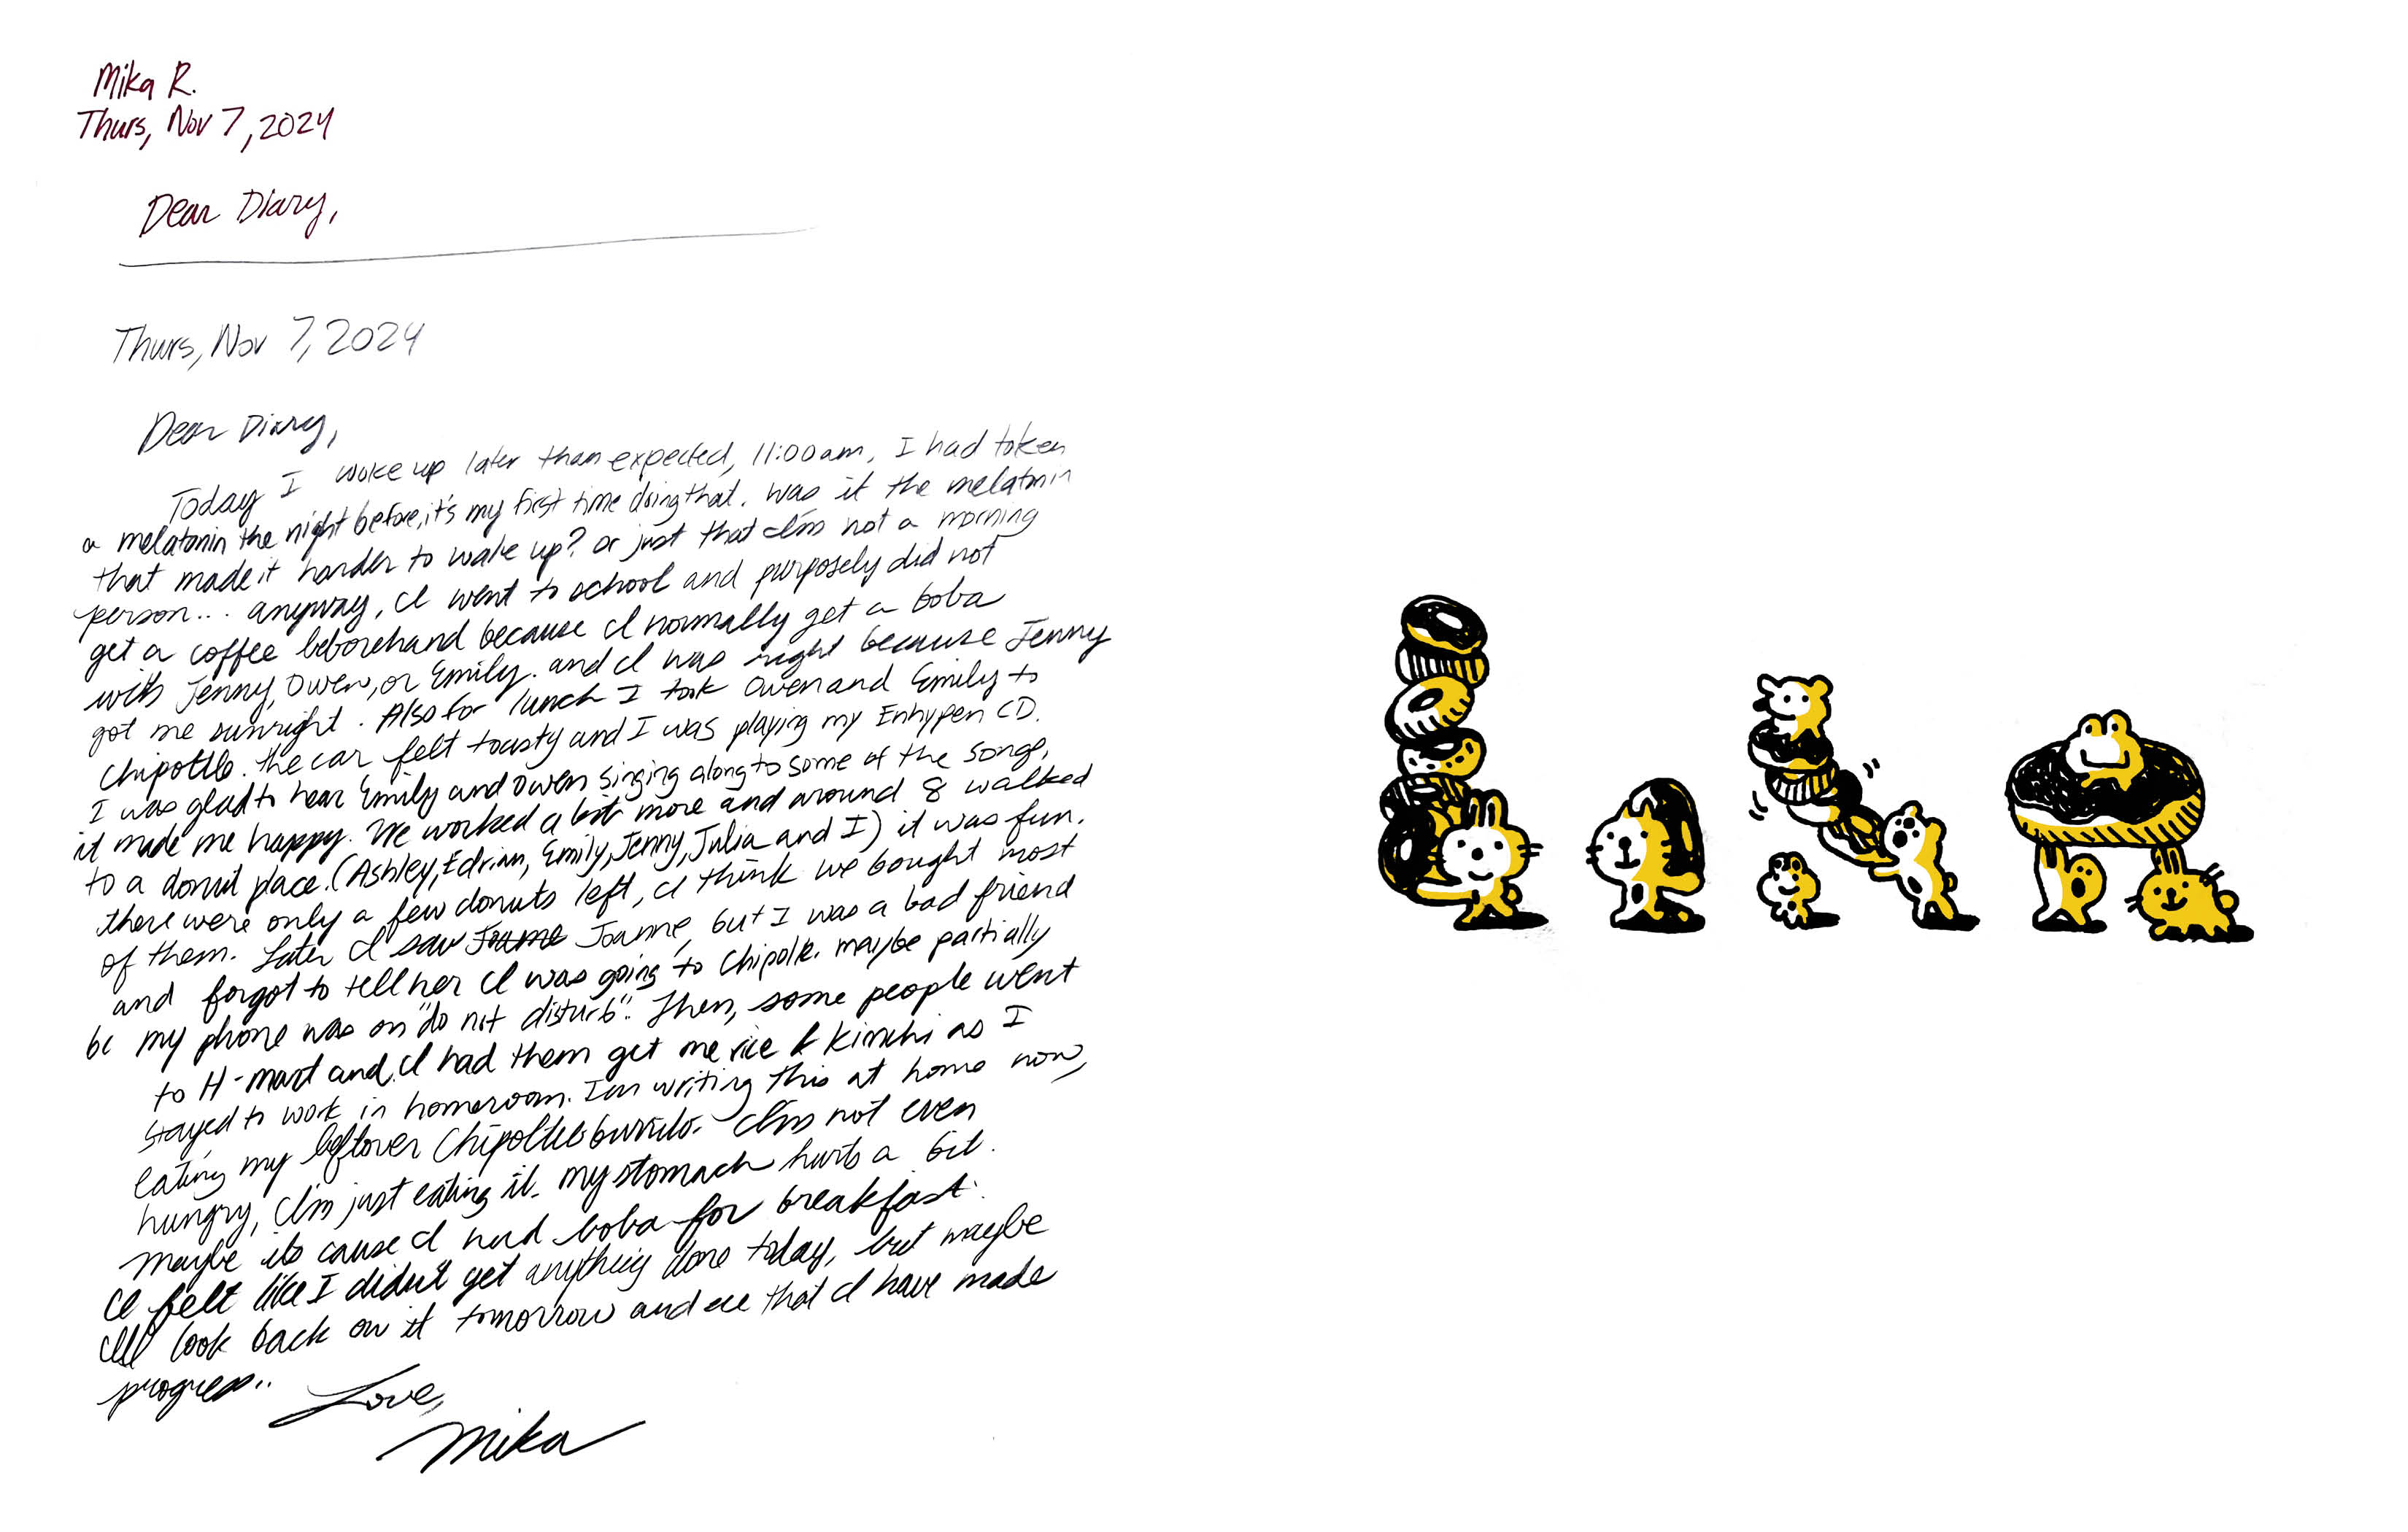 Mika R.
Thurs, Nov 7, 2024
Dear Diary,
Thurs, Nov 7, 2024
Dear Diary,
Today I woke up later than expected, 11:00am, I had taken
a melatonin the night before, it's my first time doing that. was it the melatonin
that made it harder to wake up? or just that I'm not a morning
person... anyway, I went to school and purposely did not
get a coffee beforehand because I normally get a boba
with Jenny, Owen, or Emily. and I was right because Jenny
got me sunright. Also for lunch I took Owen and Emily to
Chipotle. the car felt toasty and I was playing my Enhypen CD.
I was glad to hear Emily and Owen singing along to some of the songs,
it made me happy. We worked a bit more and around 8 walked
to a donut place. (Ashley, Edrian, Emily, Jenny, Julia and I) it was fun.
there were only a few donuts left, I think we bought most
of them. Later I saw Joanne, but I was a bad friend
and forgot to tell her I was going to Chipotle. maybe partially
bc my phone was on "do not disturb". Then, some people went
to H-mart and I had them get me rice & kimchi as I
stayed to work in homeroom. I'm writing this at home now,
eating my leftover Chipotle burrito. I'm not even
hungry, I'm just eating it. my stomach hurts a bit.
maybe its cause I had boba for breakfast.
I felt like I didn't get anything done today, but maybe
I'll look back on it tomorrow and see that I have made
progress..
Love,
Mika